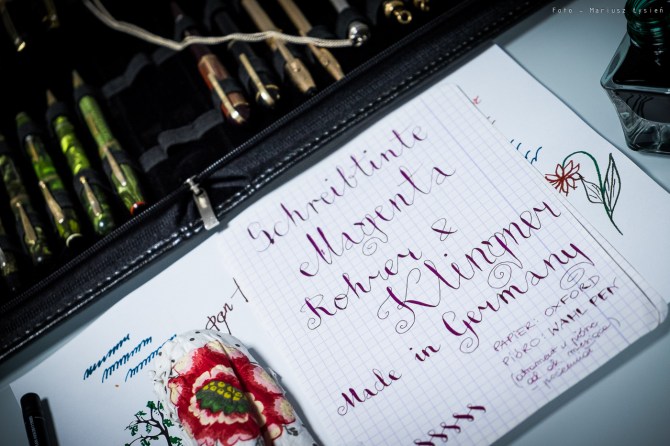 Foto - Mariusz Łysień
Schreibtinte
Magenta
Rohrer &
Klingner
Made in Germany
PAPIER: OXFORD
PIÓRO: WAHL PEN